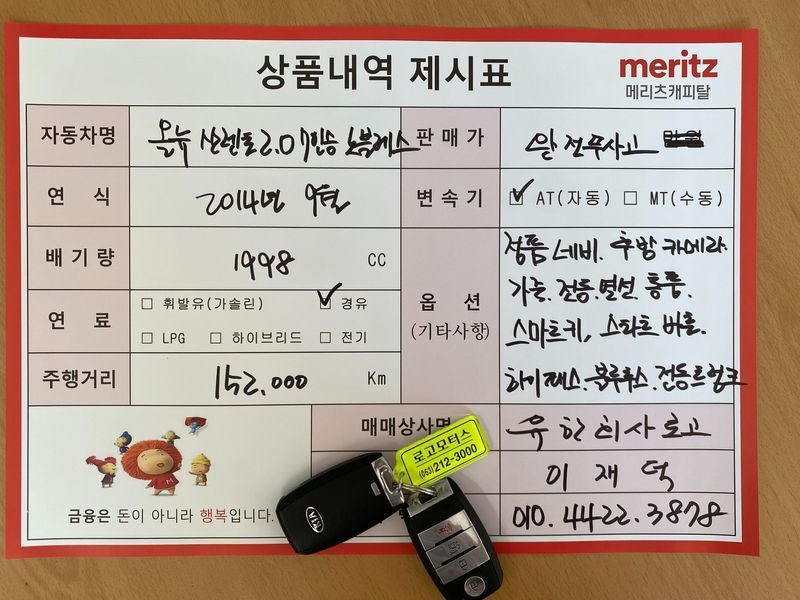 상품내역 제시표
meritz
메리츠캐피탈
자동차명 올뉴 쏘렌토 2.0 7인승 노블레스
판매가 완전무사고
연 식 2014년 9월
변속기 ☑ AT(자동) ☐ MT(수동)
배기량 1998 CC
연 료 ☐ 휘발유(가솔린) ☑ 경유
☐ LPG ☐ 하이브리드 ☐ 전기
주행거리 152.000 Km
옵 션
(기타사항)
정품 네비. 후방 카메라.
가죽. 전동. 열선. 통풍.
스마트키, 스타트 버튼.
하이패스. 블루투스. 전동트렁크
매매상사명
유한회사 로고
이 재 덕
010.4422.3878
금융은 돈이 아니라 행복입니다.
로고모터스
(063)212-3000
KIA